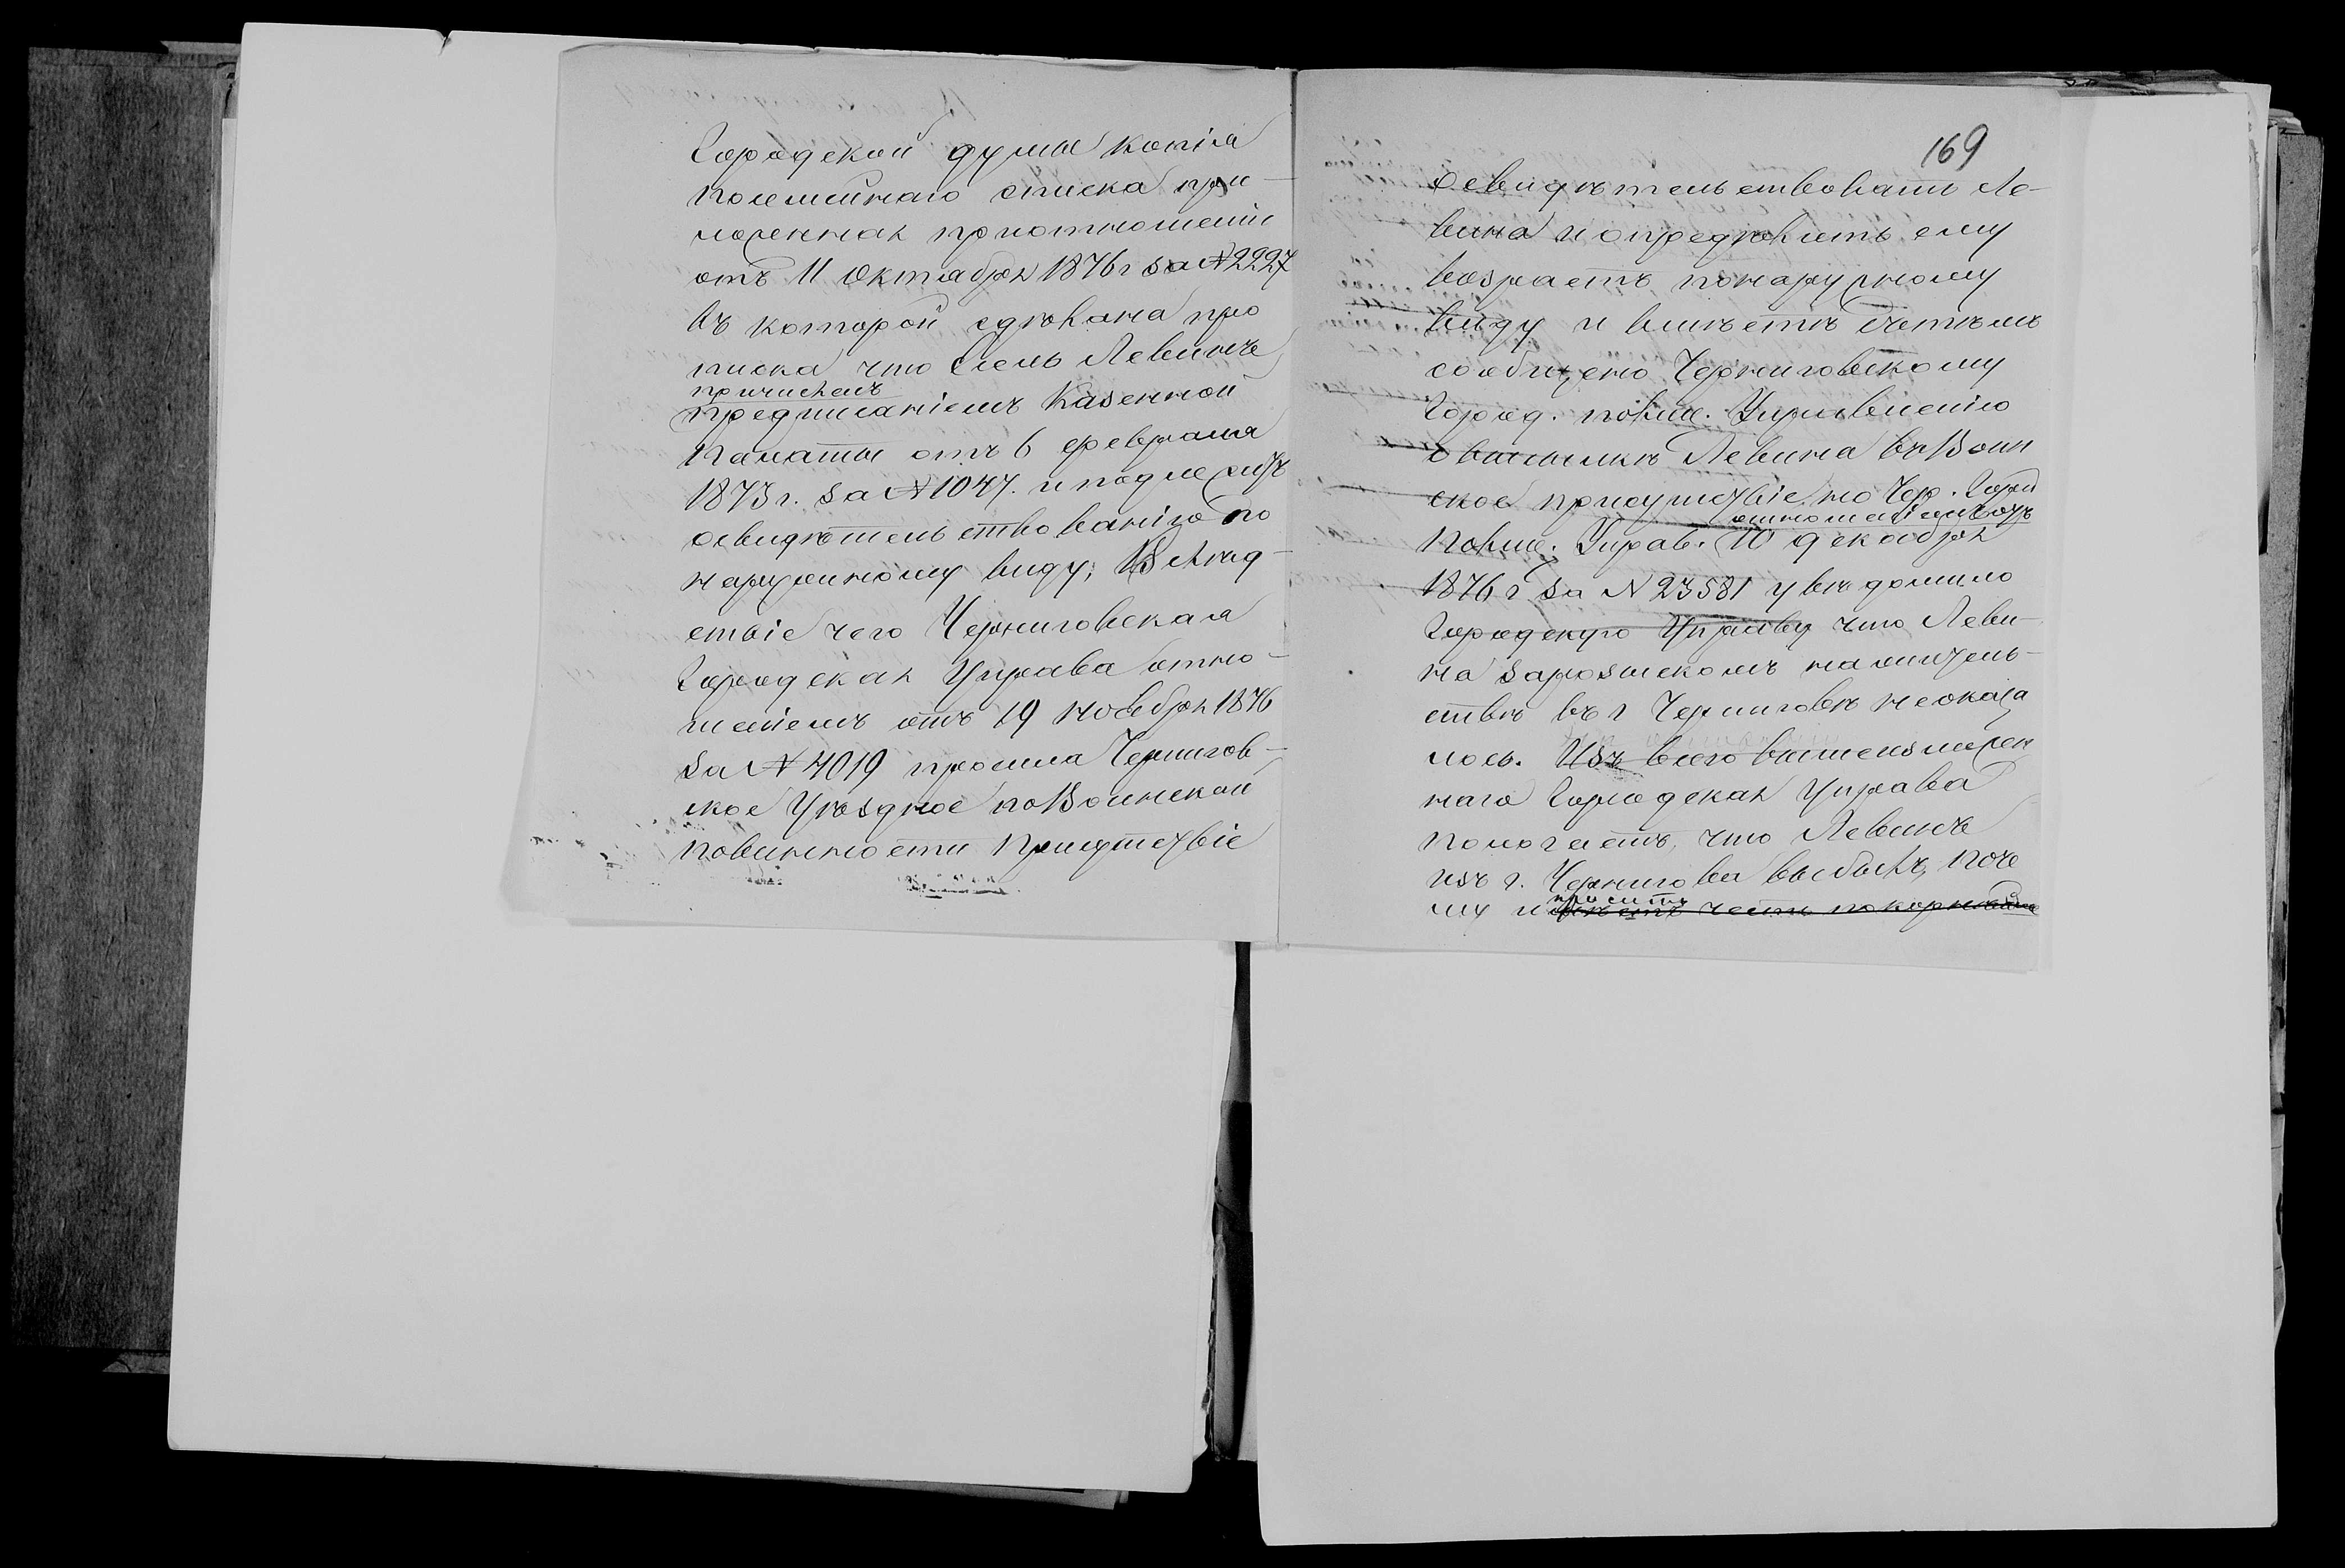 Городской думы копія
посемейнаго списка при-
ложенная приотношеніи
отъ 11 Октября 1876 г за № 2227
въ которой сдѣлана при
писка что Левинъ
причисленъ
предписаніемъ Казенной
Палаты отъ 6 февраля
1873 г. за № 1047. и подлежитъ
освидѣтельствованію по
наружному виду; Вслѣд-
ствіе чего Черниговская
Городская Управа отно-
шеніемъ отъ 19 ноября 1876
за № 4019 просила Чернигов-
ское Уѣздное по Воинской
повинности Присутствіе
169
Освидѣтельствовать Ле-
вина и опредѣлить ему
возрастъ понаружному
виду и вмѣстѣ съ тѣмъ
сообщено Черниговскому
Город. полиц. Управленію
о высылкѣ Левина въ Воин
ское присутствіе но Чер. Город
отношеніемъ отъ
Полиц. Управ. 10 декабря
1876 г за № 23581 увѣдомило
Городскую Управу что Леви-
на зарозыскомъ нажитель-
ствѣ въ г Черниговѣ неоказа
лось. Изъ всего вышеизложен
наго Городская Управа
пологаетъ, что Левинъ
изъ г. Чернигова выбылъ, поче
проситъ
му и имѣетъ честь покорнѣйше